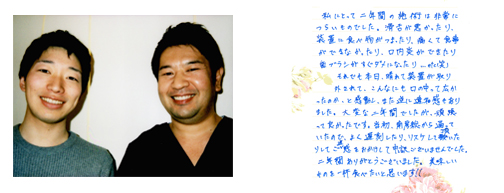 私にとって二年間の施術は非常に
つらいものでした。滑舌が悪かったり、
装置に食べ物がつまったり、痛くて食事
ができなかったり、口内炎ができたり
歯ブラシがすぐダメになったり…etc(笑)
それでも本日、晴れて装置が取り
外されて、こんなにも口の中って広か
ったのか、と感動し、また逆に違和感もあり
ました。大変な二年間でしたが、頑張
って良かったです。当初、南房総から通って
いたので、よく遅刻したり、リスケして頂いた
りしてご迷惑をおかけして申訳ございませんでした。
二年間ありがとうございました。美味しい
ものを一杯食べたいと思います!